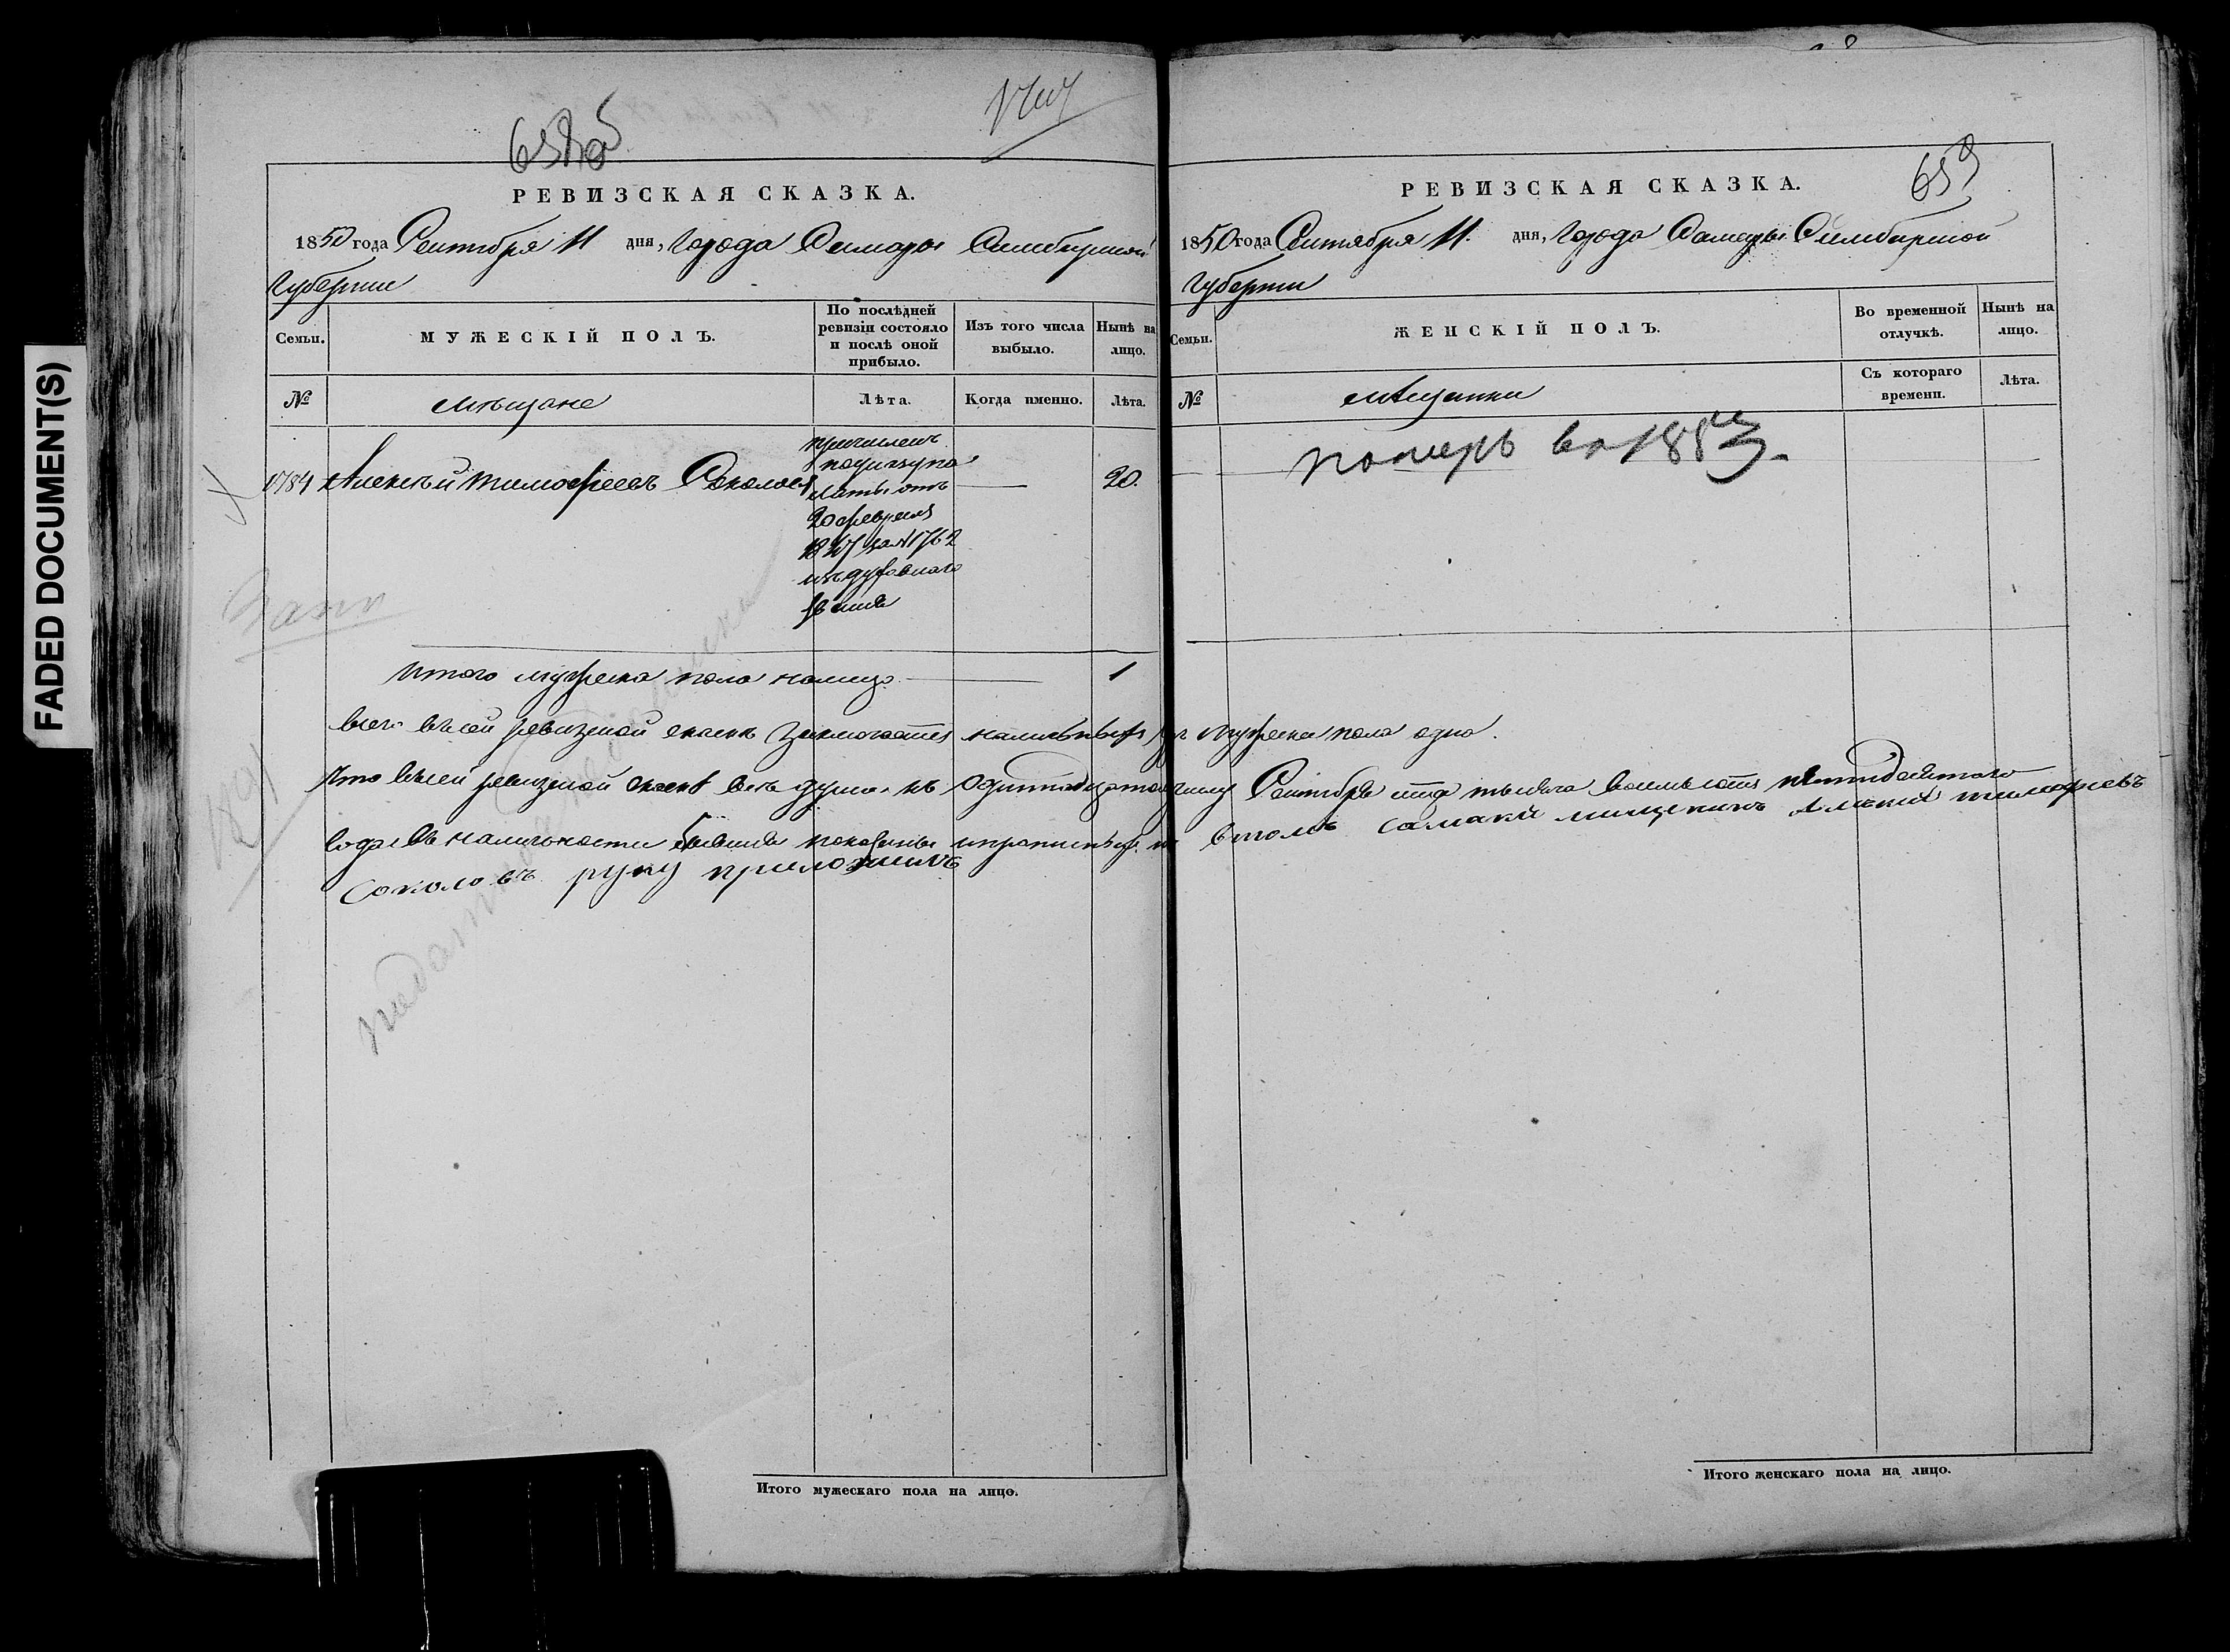 FADED DOCUMENT(S)
РЕВИЗСКАЯ СКАЗКА.
1850 года Сентября 11 дня, Города Самары Симбирской
Губернии
Семьи.
МУЖЕСКІЙ ПОЛЪ.
По послѣдней ревизіи состояло и послѣ оной прибыло.
Изъ того числа выбыло.
Нынѣ на лицо.
№
мѣщане
Лѣта.
Когда именно.
Лѣта.
1784 Алексѣй Тимофеевъ Соколовъ
причисленъ
по указу па
латы отъ
20 февраля
1847 за № 1762
изъ духовнаго
званія
20.
Итого мужеска пола налицо 1
Всего въ сей ревизской сказкѣ заключается наличныхъ мужеска пола одна.
Что въ сей ревизской сказкѣ всѣ души къ одиннадцатому числу Сентября тысяча восемьсотъ пятидесятаго
года въ наличности бывшія показаны и прописныхъ въ томъ самаки мищенинъ Алыкеи тимофіевъ
Соколовъ руку приложилъ
Итого мужескаго пола на лицо.
659
РЕВИЗСКАЯ СКАЗКА.
1850 года Сентября 11. дня, Города Самары Симбирской
Губерніи
Семьи.
ЖЕНСКІЙ ПОЛЪ.
Во временной отлучкѣ.
Нынѣ на лицо.
№
мѣщанки
Съ котораго времени.
Лѣта.
померъ въ 1853.
Итого женскаго пола на лицо.